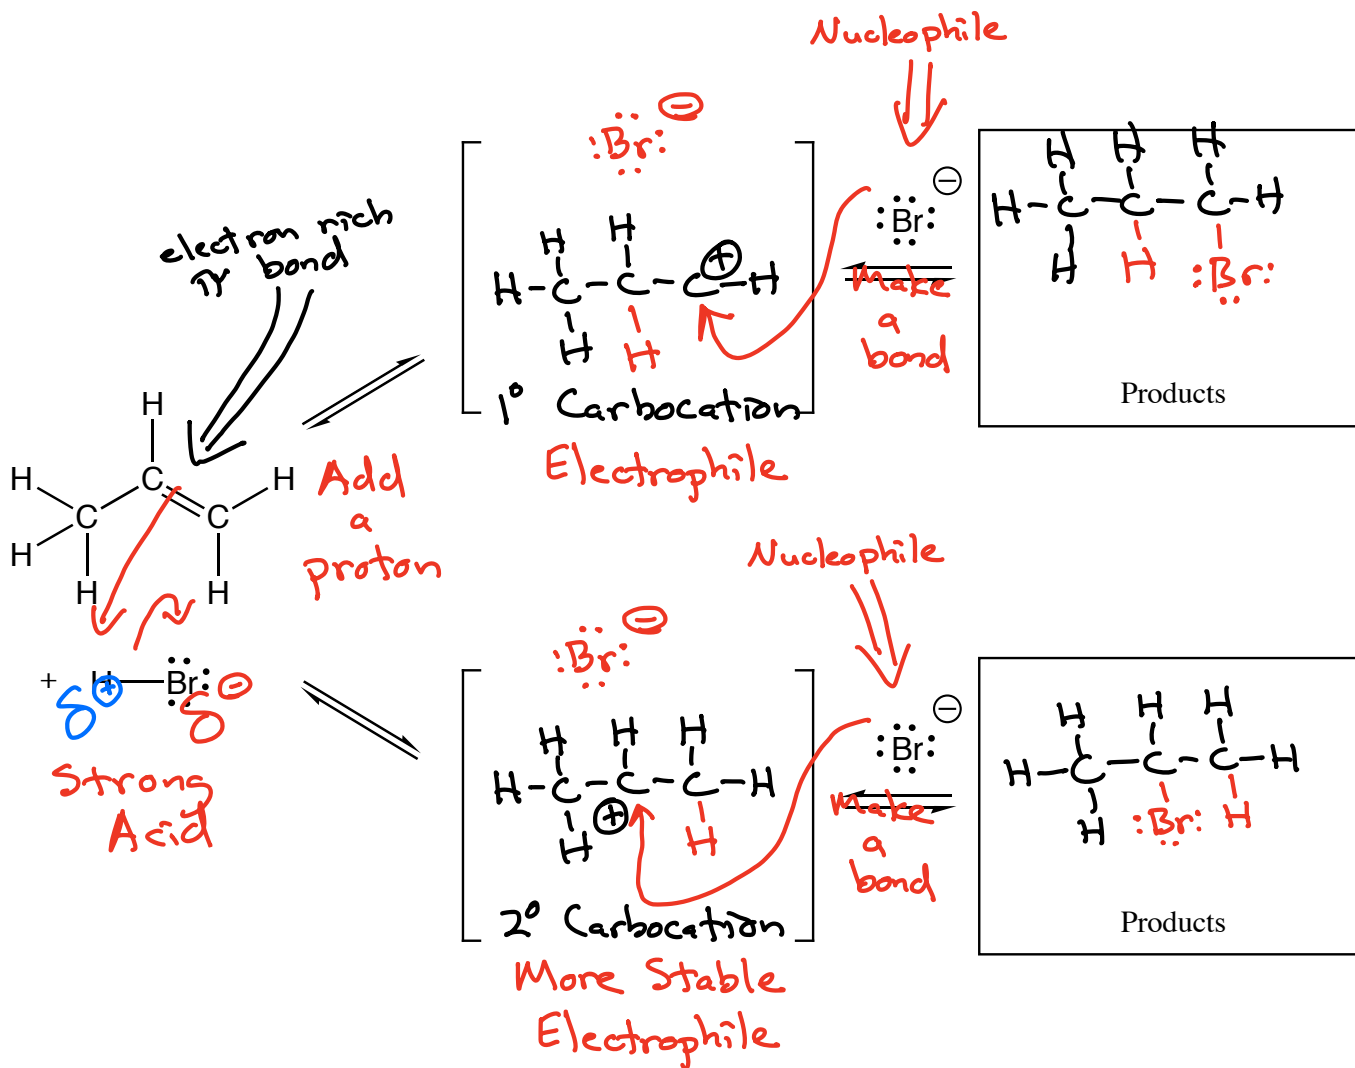 Nucleophile
:Br: ⊖
electron rich
π bond
H H
H-C-C-C⊕-H
H H
1° Carbocation
Electrophile
:Br: ⊖
Make
a
bond
H H H
H-C-C-C-H
H H :Br:
Products
H
H C H
C C
H
H H
Add
a
proton
+ H—Br:
δ⊕ δ⊖
Strong
Acid
Nucleophile
:Br: ⊖
H H H
H-C-C-C-H
⊕
H H
2° Carbocation
More Stable
Electrophile
:Br: ⊖
Make
a
bond
H H H
H-C-C-C-H
H :Br: H
Products